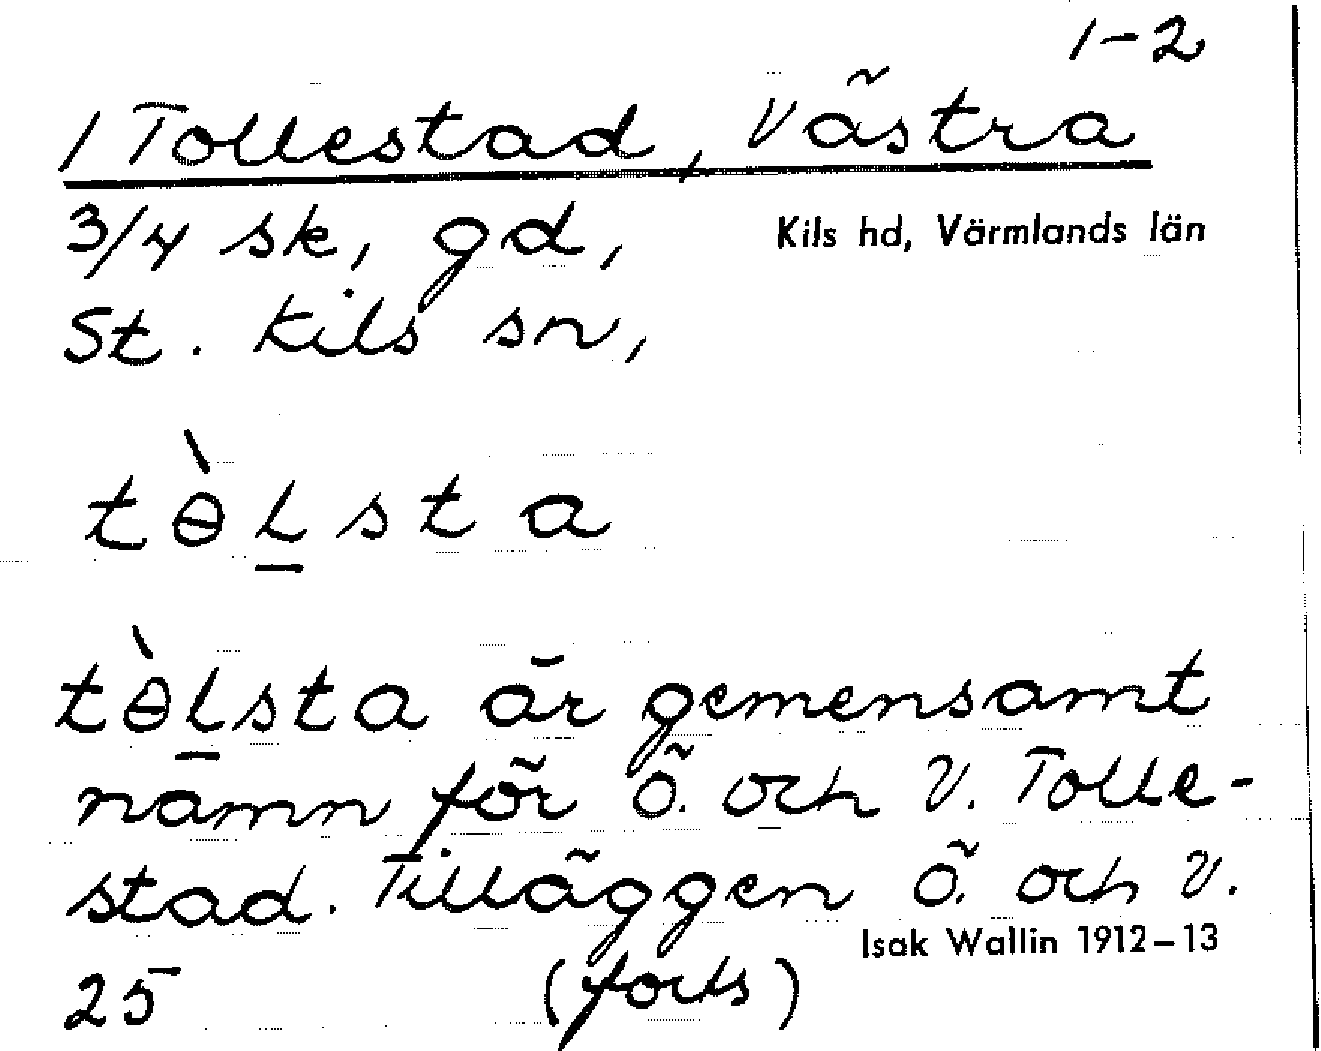 1-2
1 Tollestad, Västra
3/4 sk, gd,
Kils hd, Värmlands län
St. Kils sn,
tɵ̀l̲sta
tɵ̀l̲sta är gemensamt
namn för Ö. och V. Tolle-
stad. Tilläggen Ö. och V.
Isak Wallin 1912-13
25 (forts)